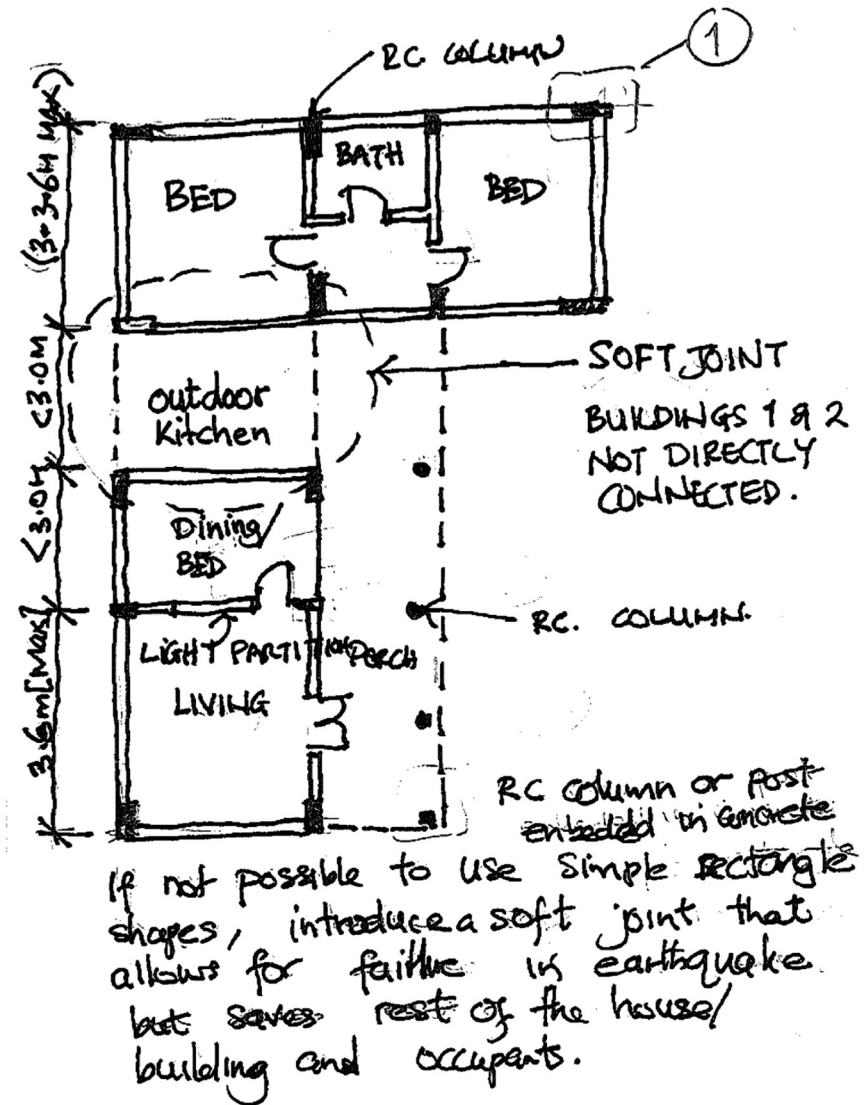 1
RC. COLUMN
(3-3.6M MAX)
BED
BATH
BED
<3.0M
outdoor
Kitchen
SOFT JOINT
BUILDINGS 1 & 2
NOT DIRECTLY
CONNECTED.
<3.0M
Dining/
BED
RC. COLUMN.
LIGHT PARTITION
PORCH
LIVING
3.6m[Max]
RC column or Post
embeded in concrete
If not possible to use simple rectangle
shapes, introduce a soft joint that
allows for failure in earthquake
but saves rest of the house/
building and occupants.